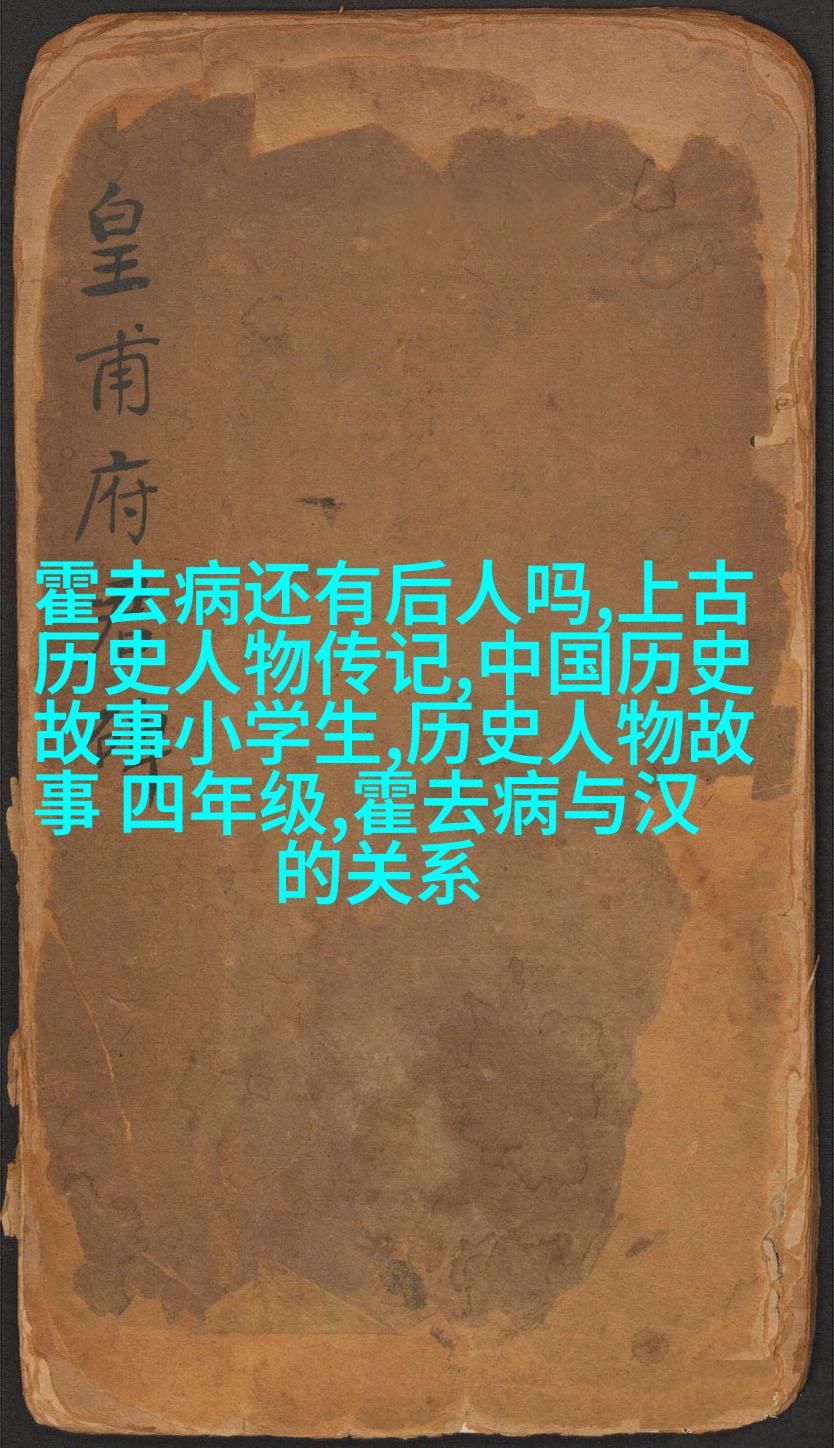 皇甫府君碑
霍去病还有后人吗,上古
历史人物传记,中国历史
故事小学生,历史人物故
事 四年级,霍去病与汉
的关系